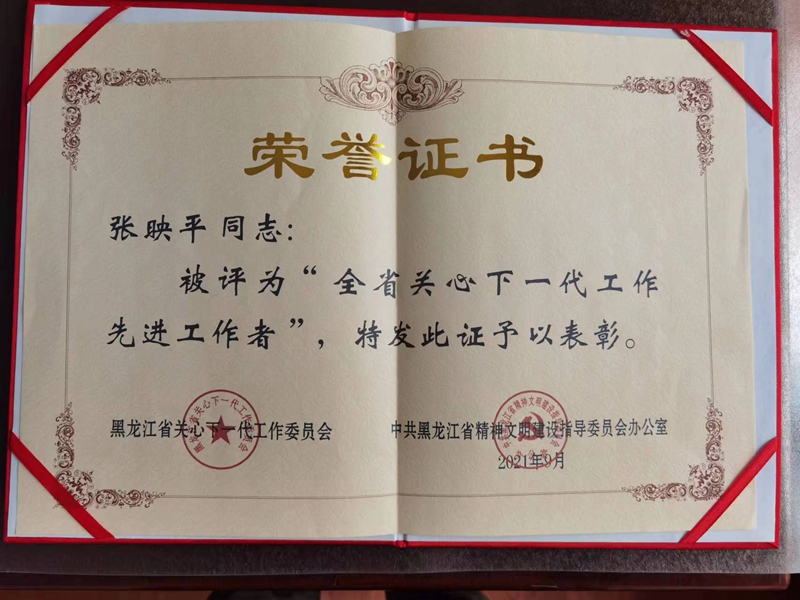 荣誉证书
张映平同志：
被评为“全省关心下一代工作
先进工作者”，特发此证予以表彰。
黑龙江省关心下一代工作委员会
中共黑龙江省精神文明建设指导委员会办公室
2021年9月